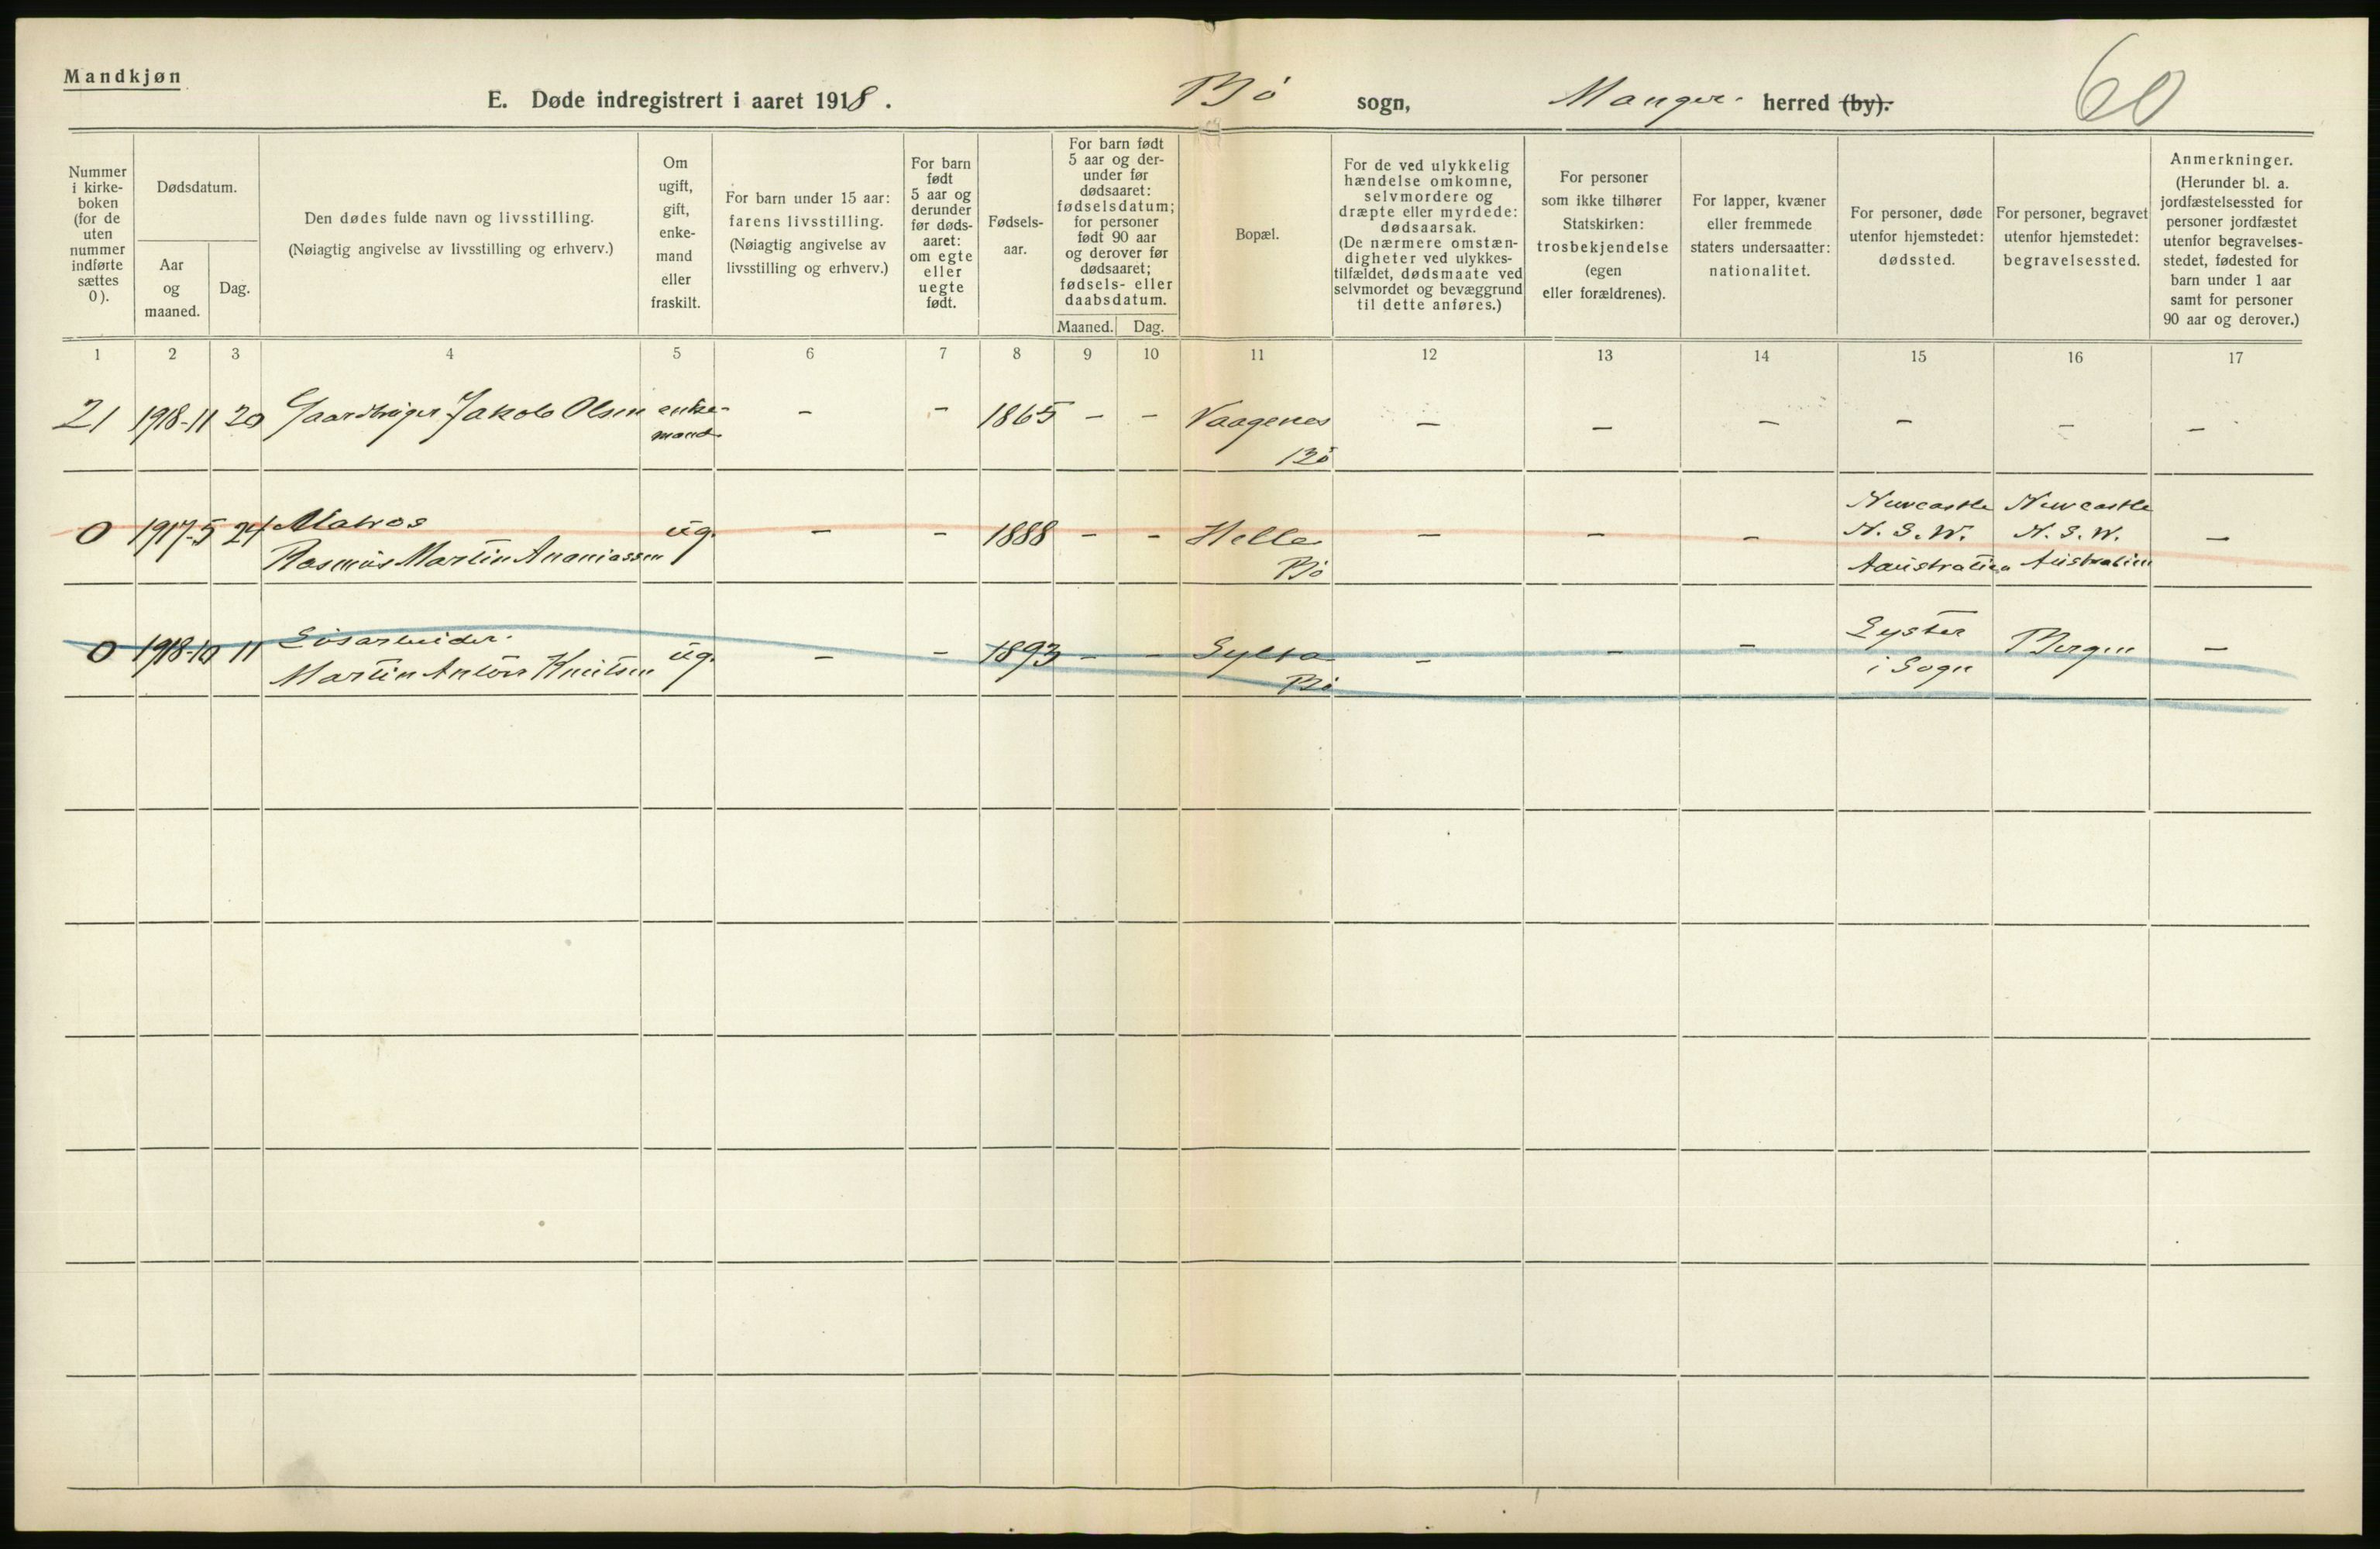 Mandkjøn
E. Døde indregistrert i aaret 1918. Bø sogn, Manger herred (by).
60
Nummer i kirke-boken (for de uten nummer indførte sættes 0).
Dødsdatum.
Aar og maaned.
Dag.
Den dødes fulde navn og livsstilling.
(Nøiagtig angivelse av livsstilling og erhverv.)
Om ugift, gift, enke-mand eller fraskilt.
For barn under 15 aar: farens livsstilling.
(Nøiagtig angivelse av livsstilling og erhverv.)
For barn født 5 aar og derunder før døds-aaret: om egte eller uegte født.
Fødsels-aar.
For barn født 5 aar og der-under før dødsaaret: fødselsdatum; for personer født 90 aar og derover før dødsaaret; fødsels- eller daabsdatum.
Maaned. Dag.
Bopæl.
For de ved ulykkelig hændelse omkomne, selvmordere og dræpte eller myrdede: dødsaarsak.
(De nærmere omstæn-digheter ved ulykkes-tilfældet, dødsmaate ved selvmordet og bevæggrund til dette anføres.)
For personer som ikke tilhører Statskirken: trosbekjendelse (egen eller forældrenes).
For lapper, kvæner eller fremmede staters undersaatter: nationalitet.
For personer, døde utenfor hjemstedet: dødssted.
For personer, begravet utenfor hjemstedet: begravelsessted.
Anmerkninger.
(Herunder bl. a. jordfæstelsessted for personer jordfæstet utenfor begravelses-stedet, fødested for barn under 1 aar samt for personer 90 aar og derover.)
1 2 3 4 5 6 7 8 9 10 11 12 13 14 15 16 17
21 1918-11 20 Gaardbruger Jakob Olsen enke-mand - - 1865 - - Vaagenes Bø - - - - - -
0 1917-5 24 Matros Rasmus Martin Ananiassen ug. - - 1888 - - Helle Bø - - - Newcastle N. S. W. Aaustralien Newcastle N. S. W. Australien -
0 1918-10 11 Løsarbeider. Martin Anton Knutsen ug. - - 1893 - - Sylta Bø - - - Lyster i Sogn Bergen -